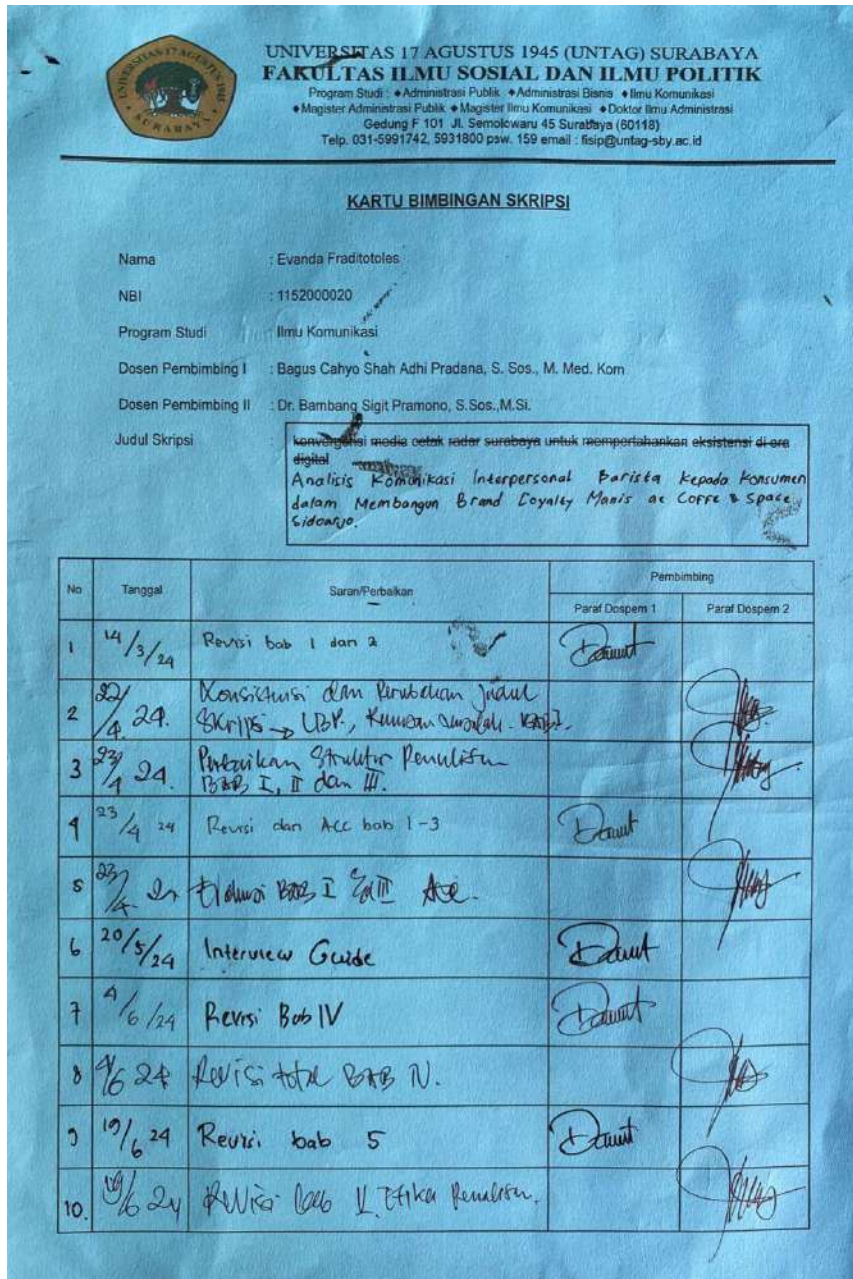 UNIVERSITAS 17 AGUSTUS 1945 SURABAYA
UNIVERSITAS 17 AGUSTUS 1945 (UNTAG) SURABAYA
FAKULTAS ILMU SOSIAL DAN ILMU POLITIK
Program Studi : ◆Administrasi Publik ◆Administrasi Bisnis ◆Ilmu Komunikasi
◆Magister Administrasi Publik ◆Magister Ilmu Komunikasi ◆Doktor Ilmu Administrasi
Gedung F 101 Jl. Semolowaru 45 Surabaya (60118)
Telp. 031-5991742, 5931800 psw. 159 email : fisip@untag-sby.ac.id
KARTU BIMBINGAN SKRIPSI
Nama : Evanda Fraditotoles
NBI : 1152000020
Program Studi : Ilmu Komunikasi
Dosen Pembimbing I : Bagus Cahyo Shah Adhi Pradana, S. Sos., M. Med. Kom
Dosen Pembimbing II : Dr. Bambang Sigit Pramono, S.Sos.,M.Si.
Judul Skripsi :
konvergensi media cetak radar surabaya untuk mempertahankan eksistensi di era
digital
Analisis Komunikasi Interpersonal Barista kepada Konsumen
dalam Membangun Brand Loyalty Manis ae Coffe & Space
Sidoarjo.
No Tanggal Saran/Perbaikan Pembimbing
Paraf Dospem 1 Paraf Dospem 2
1 14/3/24 Revisi bab 1 dan 2
2 22/4. 24. dan Perubahan Judul
Skripsi →
3 23/4 24. Perbaikan Struktur Penulisan
BAB I, II dan III.
4 23/4 24 Revisi dan ACC bab 1-3
5 23/4. BAB I III
6 20/5/24 Interview Guide
7 4/6/24 Revisi Bab IV
8 4/6 24 Revisi total BAB IV.
9 19/6 24 Revisi bab 5
10. 19/6 24 Revisi bab V. Etika